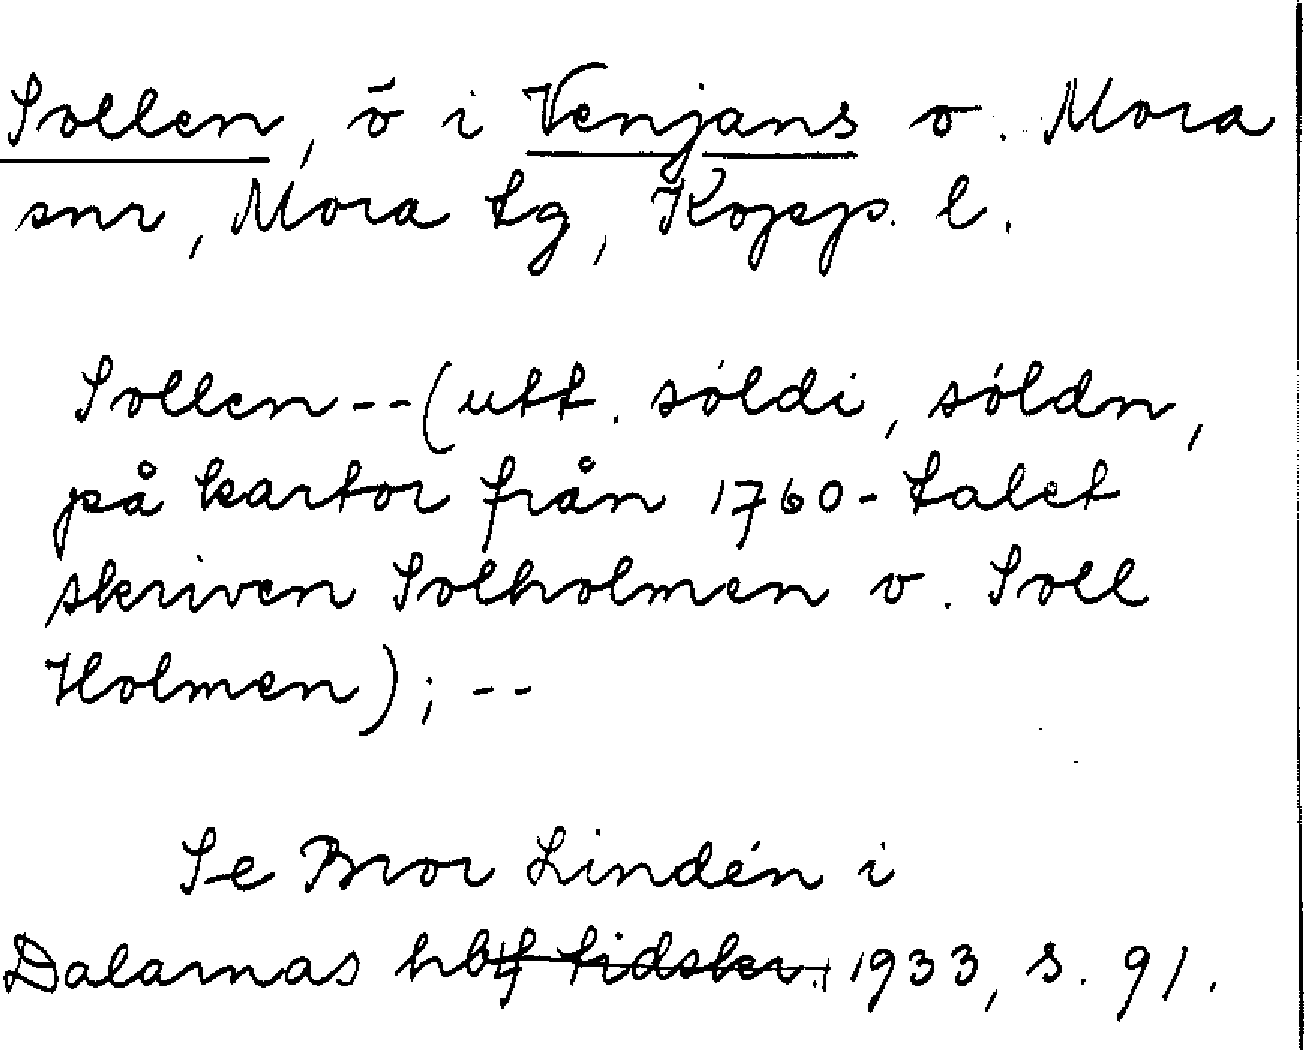 Sollen, ö i Venjans o. Mora
snr, Mora tg, Kopp. l.
Sollen--(utt. sóldi, sóldn,
på kartor från 1760-talet
skriven Solholmen o. Soll
Holmen); --
Se Bror Lindén i
Dalarnas hbf tidskr. 1933, s. 91.